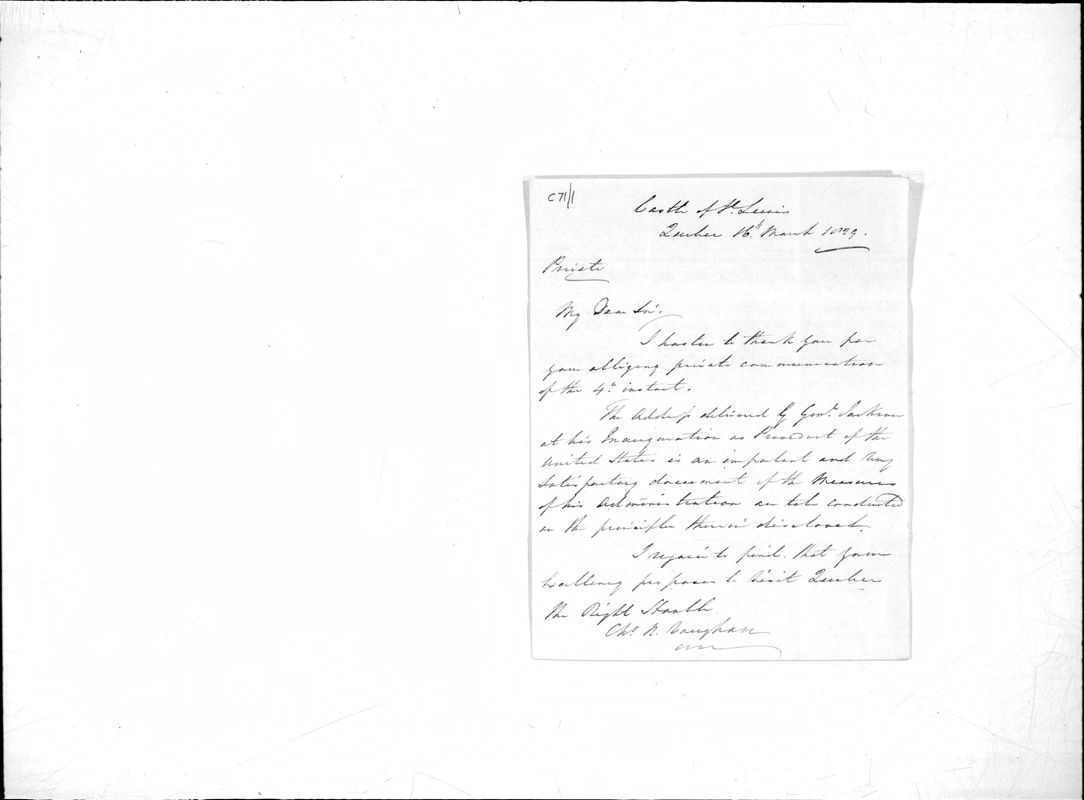 C71/1
Castle of St. Lewis
Quebec 16th March 1829.
Private
My Dear Sir.
I hasten to thank you for
your obliging private communication
of the 4th instant.
The Address delivered by Genl. Jackson
at his Inauguration as President of the
United States is an important and very
satisfactory document if the Measures
of his Administration are to be conducted
on the principles therein disclosed.
I rejoice to find that your
Excellency proposes to visit Quebec
The Right Honble
Chs. R. Vaughan